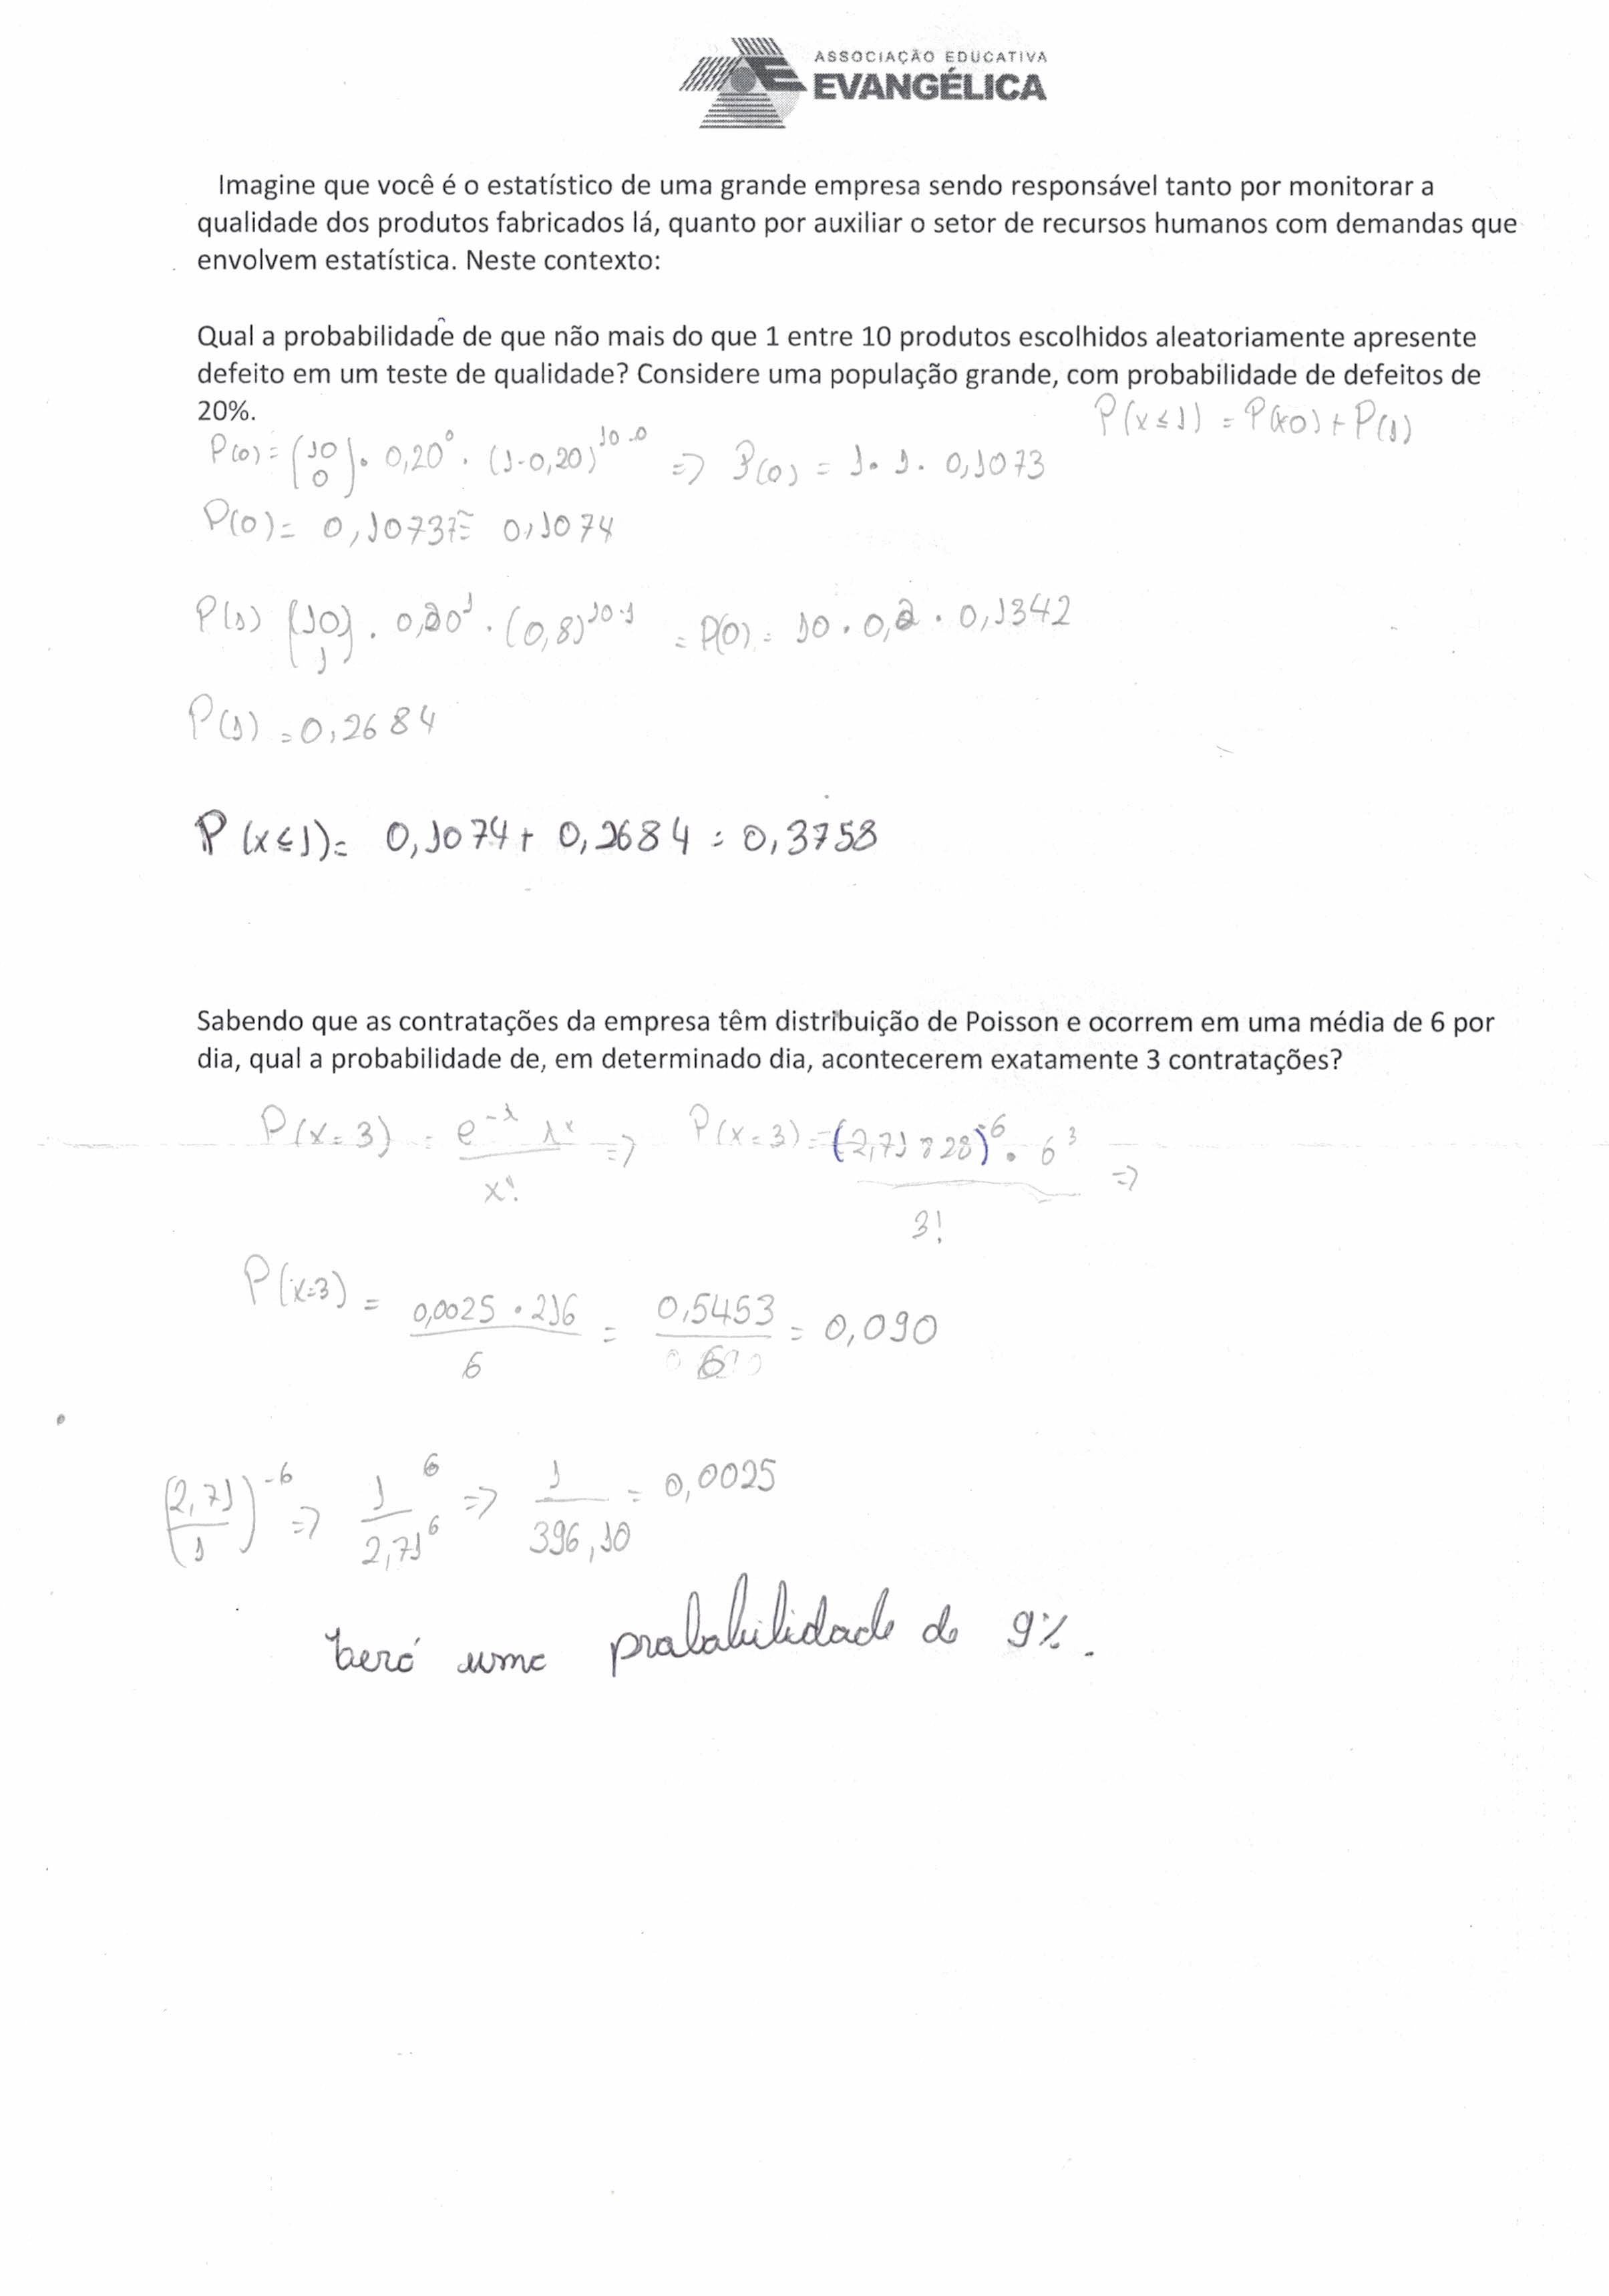 ASSOCIAÇÃO EDUCATIVA
EVANGÉLICA
Imagine que você é o estatístico de uma grande empresa sendo responsável tanto por monitorar a
qualidade dos produtos fabricados lá, quanto por auxiliar o setor de recursos humanos com demandas que
envolvem estatística. Neste contexto:
Qual a probabilidade de que não mais do que 1 entre 10 produtos escolhidos aleatoriamente apresente
defeito em um teste de qualidade? Considere uma população grande, com probabilidade de defeitos de
20%.
P(x≤1) = P(x0) + P(1)
P(0) = (10 0) . 0,20⁰ . (1-0,20)¹⁰⁻⁰ => P(0) = 1 . 1 . 0,1073
P(0) = 0,10737 ≅ 0,1074
P(1) (10 1) . 0,20¹ . (0,8)¹⁰⁻¹ = P(0) = 10 . 0,2 . 0,1342
P(1) = 0,2684
P(x≤1) = 0,1074 + 0,2684 = 0,3758
Sabendo que as contratações da empresa têm distribuição de Poisson e ocorrem em uma média de 6 por
dia, qual a probabilidade de, em determinado dia, acontecerem exatamente 3 contratações?
P(x=3) = e^-λ λ^x / x! => P(x=3) = (2,71828)⁻⁶ . 6³ / 3! =>
P(x=3) = 0,0025 . 216 / 6 = 0,5453 / 6 = 0,090
(2,71 / 1)⁻⁶ => 1⁶ / 2,71⁶ => 1 / 396,10 = 0,0025
terá uma probabilidade de 9%.